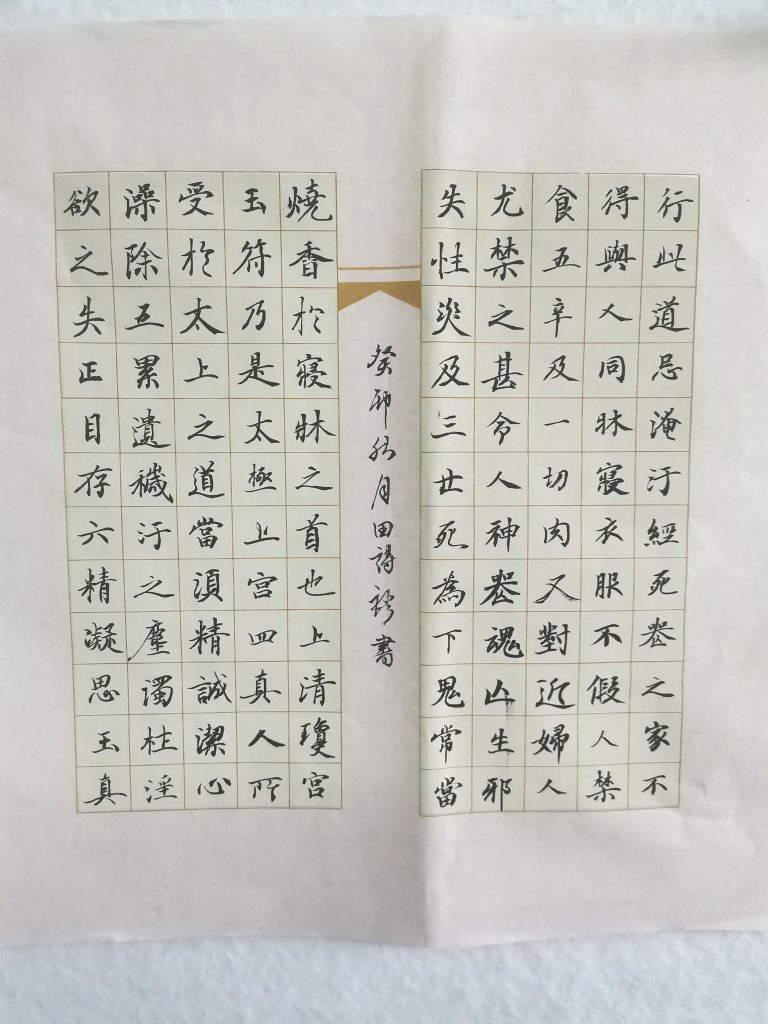 行此道忌淹汙經死喪之家不
得與人同牀寢衣服不假人禁
食五辛及一切肉又對近婦人
尤禁之甚令人神喪魂亡生邪
失性災及三世死為下鬼常當
燒香於寢牀之首也上清瓊宮
玉符乃是太極上宮四真人所
受於太上之道當須精誠潔心
澡除五累遺穢汙之塵濁杜淫
欲之失正目存六精凝思玉真
癸卯秋月田詩書